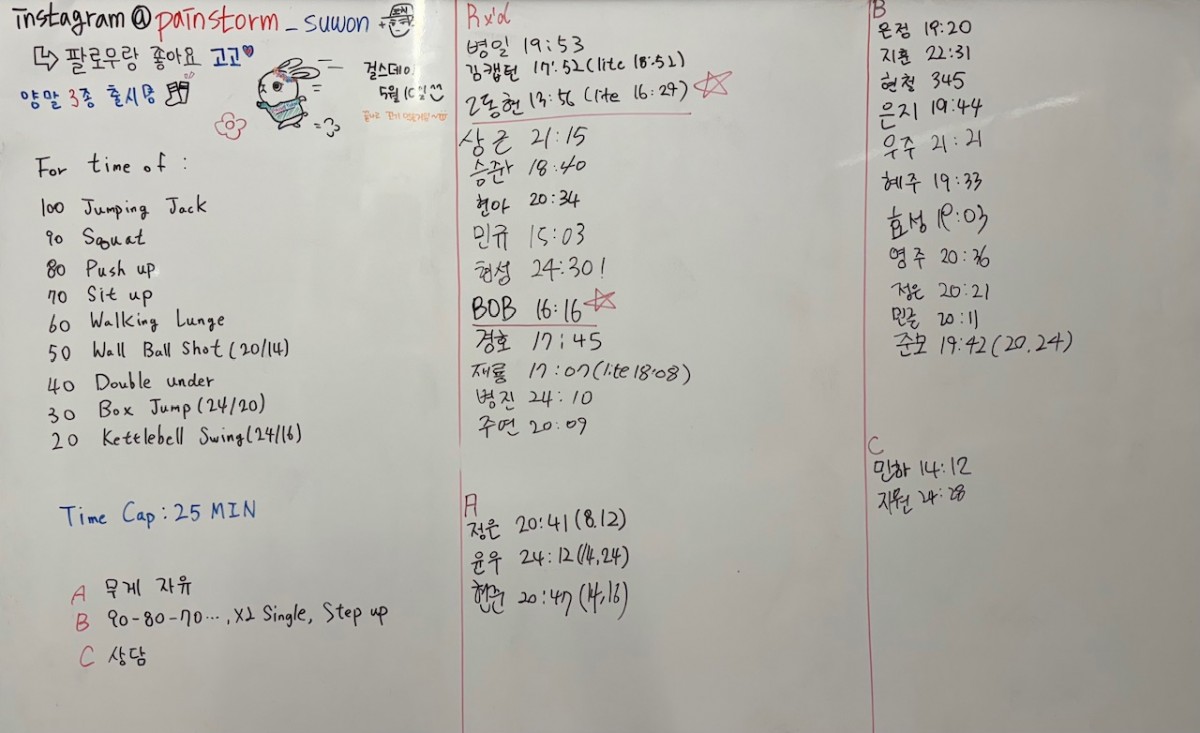 instagram@painstorm_suwon
팔로우랑 좋아요 고고
양말 3종 출시중
걸스데이
5월 10일
For time of :
100 Jumping Jack
90 Squat
80 Push up
70 Sit up
60 Walking Lunge
50 Wall Ball Shot (20/14)
40 Double under
30 Box Jump (24/20)
20 Kettlebell Swing (24/16)
Time Cap : 25 MIN
A 무게 자유
B 90-80-70..., X2 Single, Step up
C 상담
Rx'd
병일 19:53
김캡틴 17:52 (lite 18:51)
2동현 13:56 (lite 16:27)
상근 21:15
승준 18:40
현아 20:34
민규 15:03
형성 24:30!
BOB 16:16
경호 17:45
재룡 17:07 (lite 18:08)
병진 24:10
주연 20:09
A
정은 20:41 (8.12)
윤우 24:12 (14,24)
현준 20:47 (14,16)
B
은정 19:20
지훈 22:31
현철 345
은지 19:44
우주 21:21
혜주 19:33
효성 19:03
영주 20:36
정은 20:21
민글 20:11
준모 19:42 (20,24)
C
민하 14:12
지원 24:28